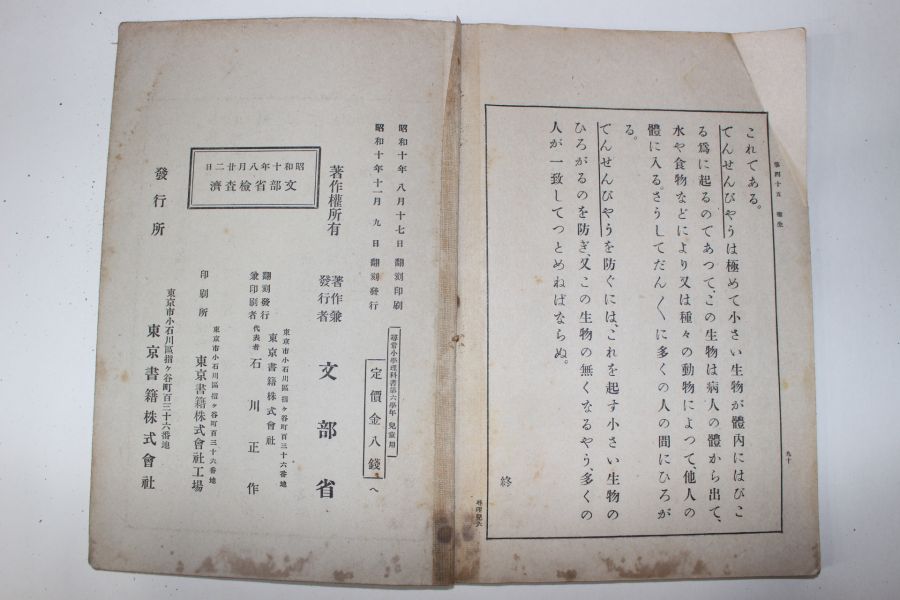 第四十五 衞生
これである。
てんせんびやうは極めて小さい生物が體内にはびこ
る爲に起るのであつて、この生物は病人の體から出て、
水や食物などにより又は種々の動物によつて、他人の
體に入る。さうしてだん〳〵に多くの人の間にひろが
る。
てんせんびやうを防ぐには、これを起す小さい生物の
ひろがるのを防ぎ、又この生物の無くなるやう、多くの
人が一致してつとめねばならぬ。
終
九十
昭和十年八月十七日 翻刻印刷
昭和十年十一月九日 翻刻發行
尋常小學理科書第六學年 兒童用
定價金八錢
へ
著作權所有
著作兼
發行者
文部省
翻刻發行
兼印刷者
東京市小石川區指ヶ谷町百三十六番地
東京書籍株式會社
代表者 石川正作
昭和十年八月廿二日
文部省檢查濟
印刷所
東京市小石川區指ヶ谷町百三十六番地
東京書籍株式會社工場
發行所
東京市小石川區指ヶ谷町百三十六番地
東京書籍株式會社